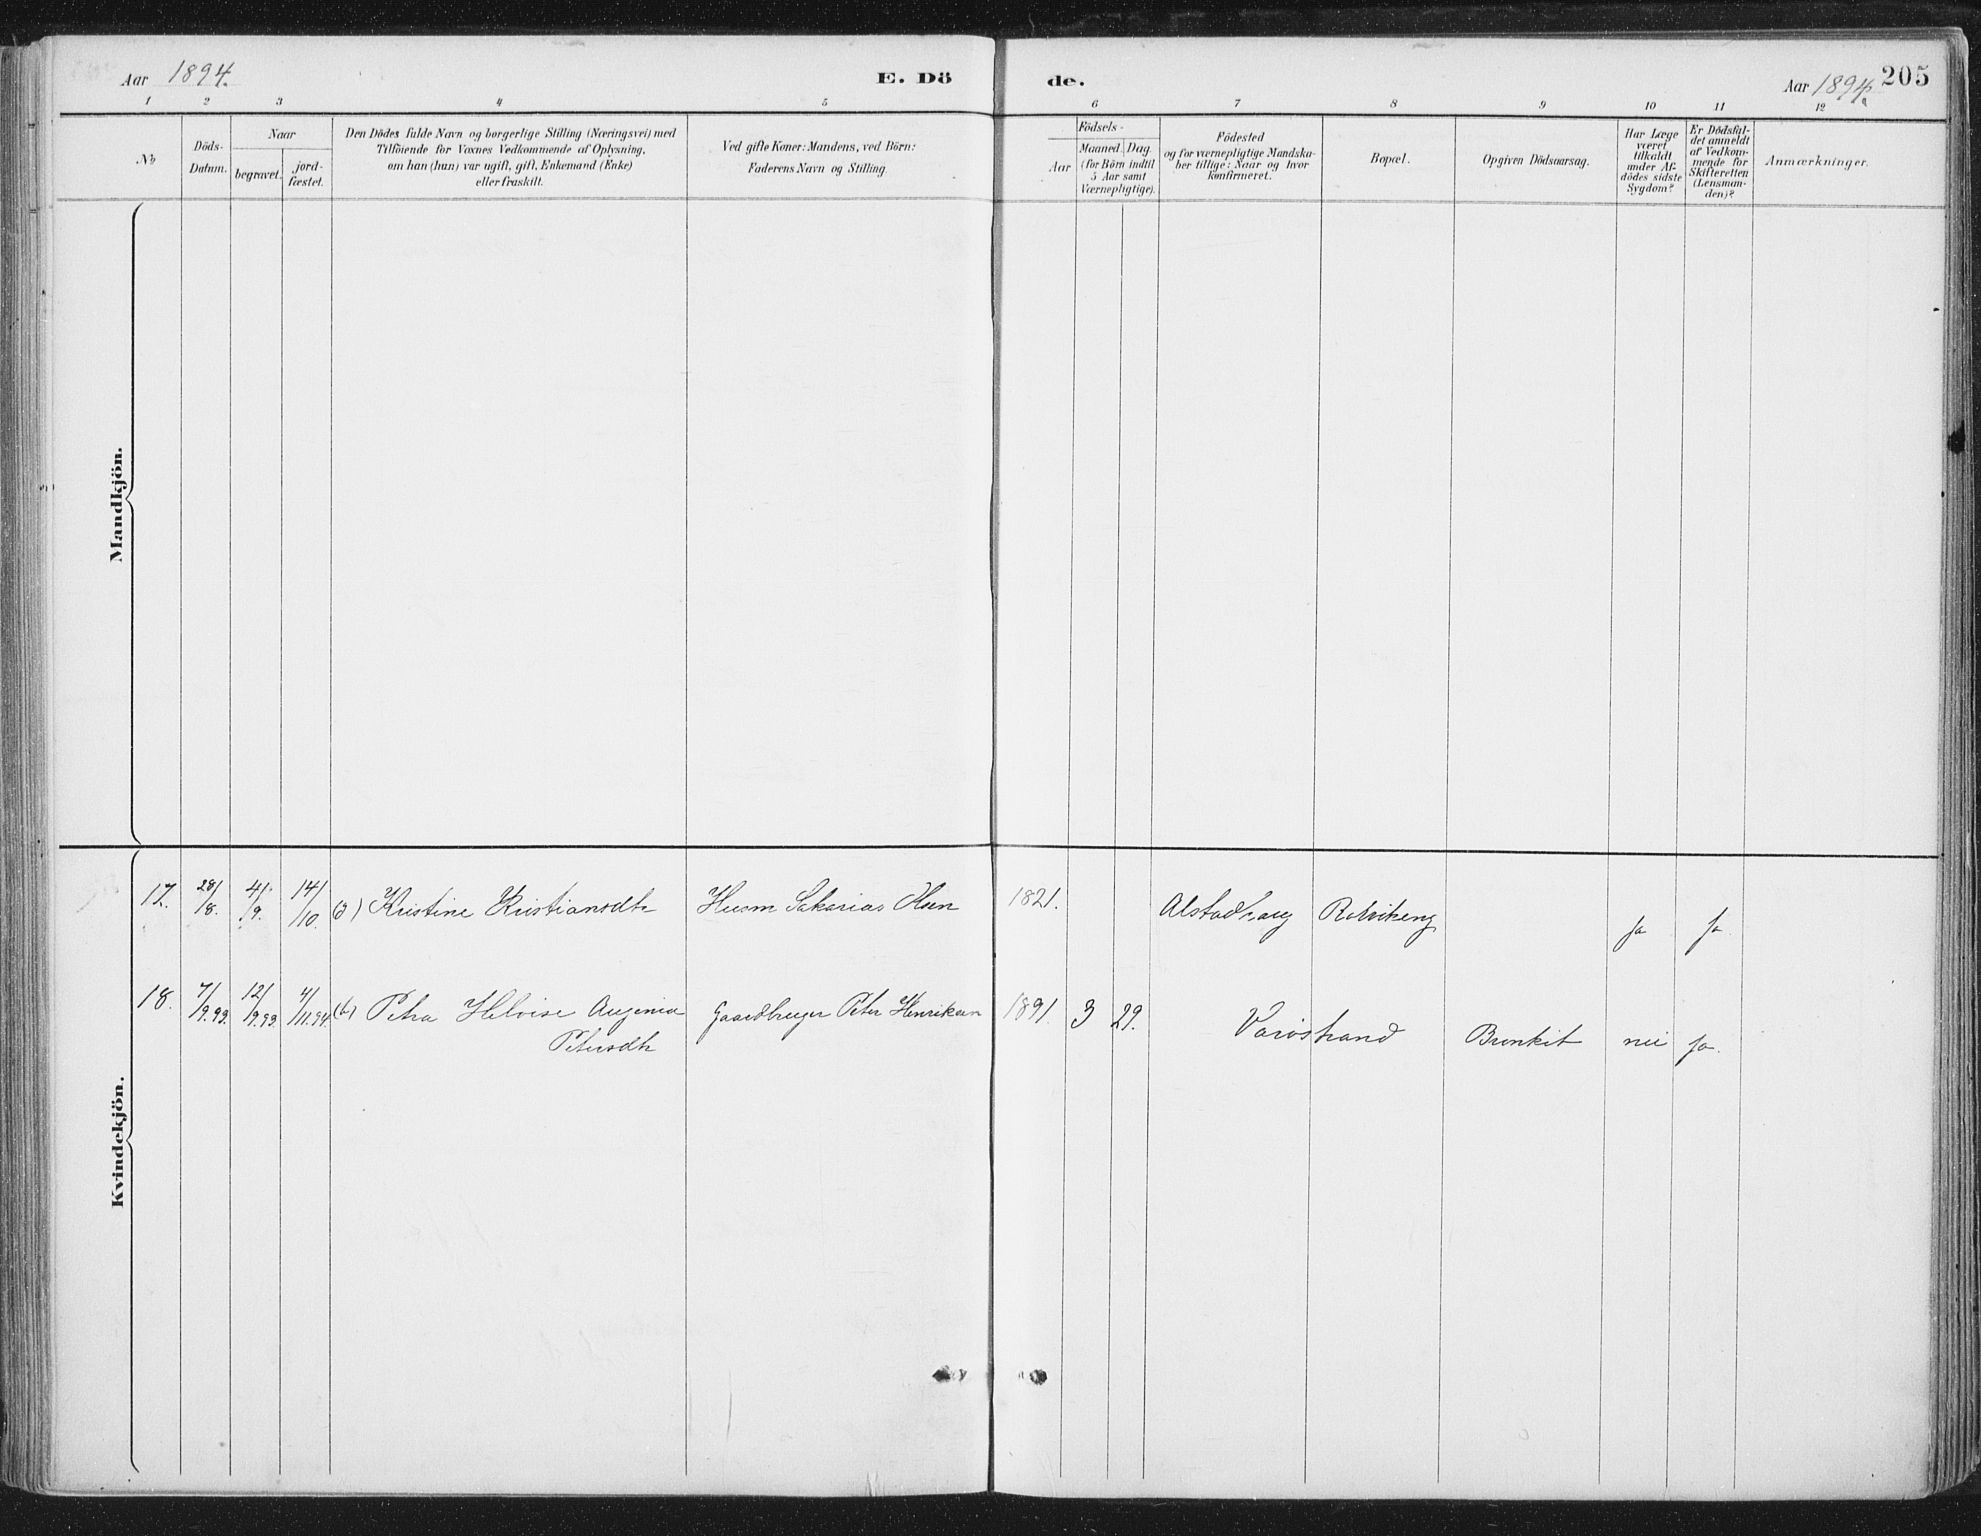 Aar 1894.
E. Dö
de.
Aar 1894.
205
1 2 3 4 5 6 7 8 9 10 11 12
No
Döds-
Datum.
Naar
begravet.
jord-
fæstet.
Den Dödes fulde Navn og borgerlige Stilling (Næringsvei) med
Tilföiende for Voxnes Vedkommende af Oplysning,
om han (hun) var ugift, gift, Enkemand (Enke)
eller fraskilt.
Ved gifte Koner: Mandens, ved Börn:
Faderens Navn og Stilling.
Födsels-
Aar
Maaned. Dag.
(for Börn indtil
5 Aar samt
Værnepligtige).
Födested
og for værnepligtige Mandska-
ber tillige: Naar og hvor
konfirmeret.
Bopæl.
Opgiven Dödsaarsag.
Har Læge
været
tilkaldt
under Af-
dödes sidste
Sygdom?
Er Dödsfal-
det anmeldt
af Vedkom-
mende for
Skifteretten
(Lensman-
den)?
Anmærkninger.
Mandkjön.
Kvindekjön.
17. 28/8. 4/9. 14/10. (d) Kristine Kristiansdtr Husm Sakarias 1821. Alstadhaug ja ja
18. 7/9.93. 12/9.93. 4/11.94. (b) Petra Heloise Augenia Gaardbruger Peter Henriksen 1891. 3 29.
Petersdtr Varöstrand Bronkit nei ja.